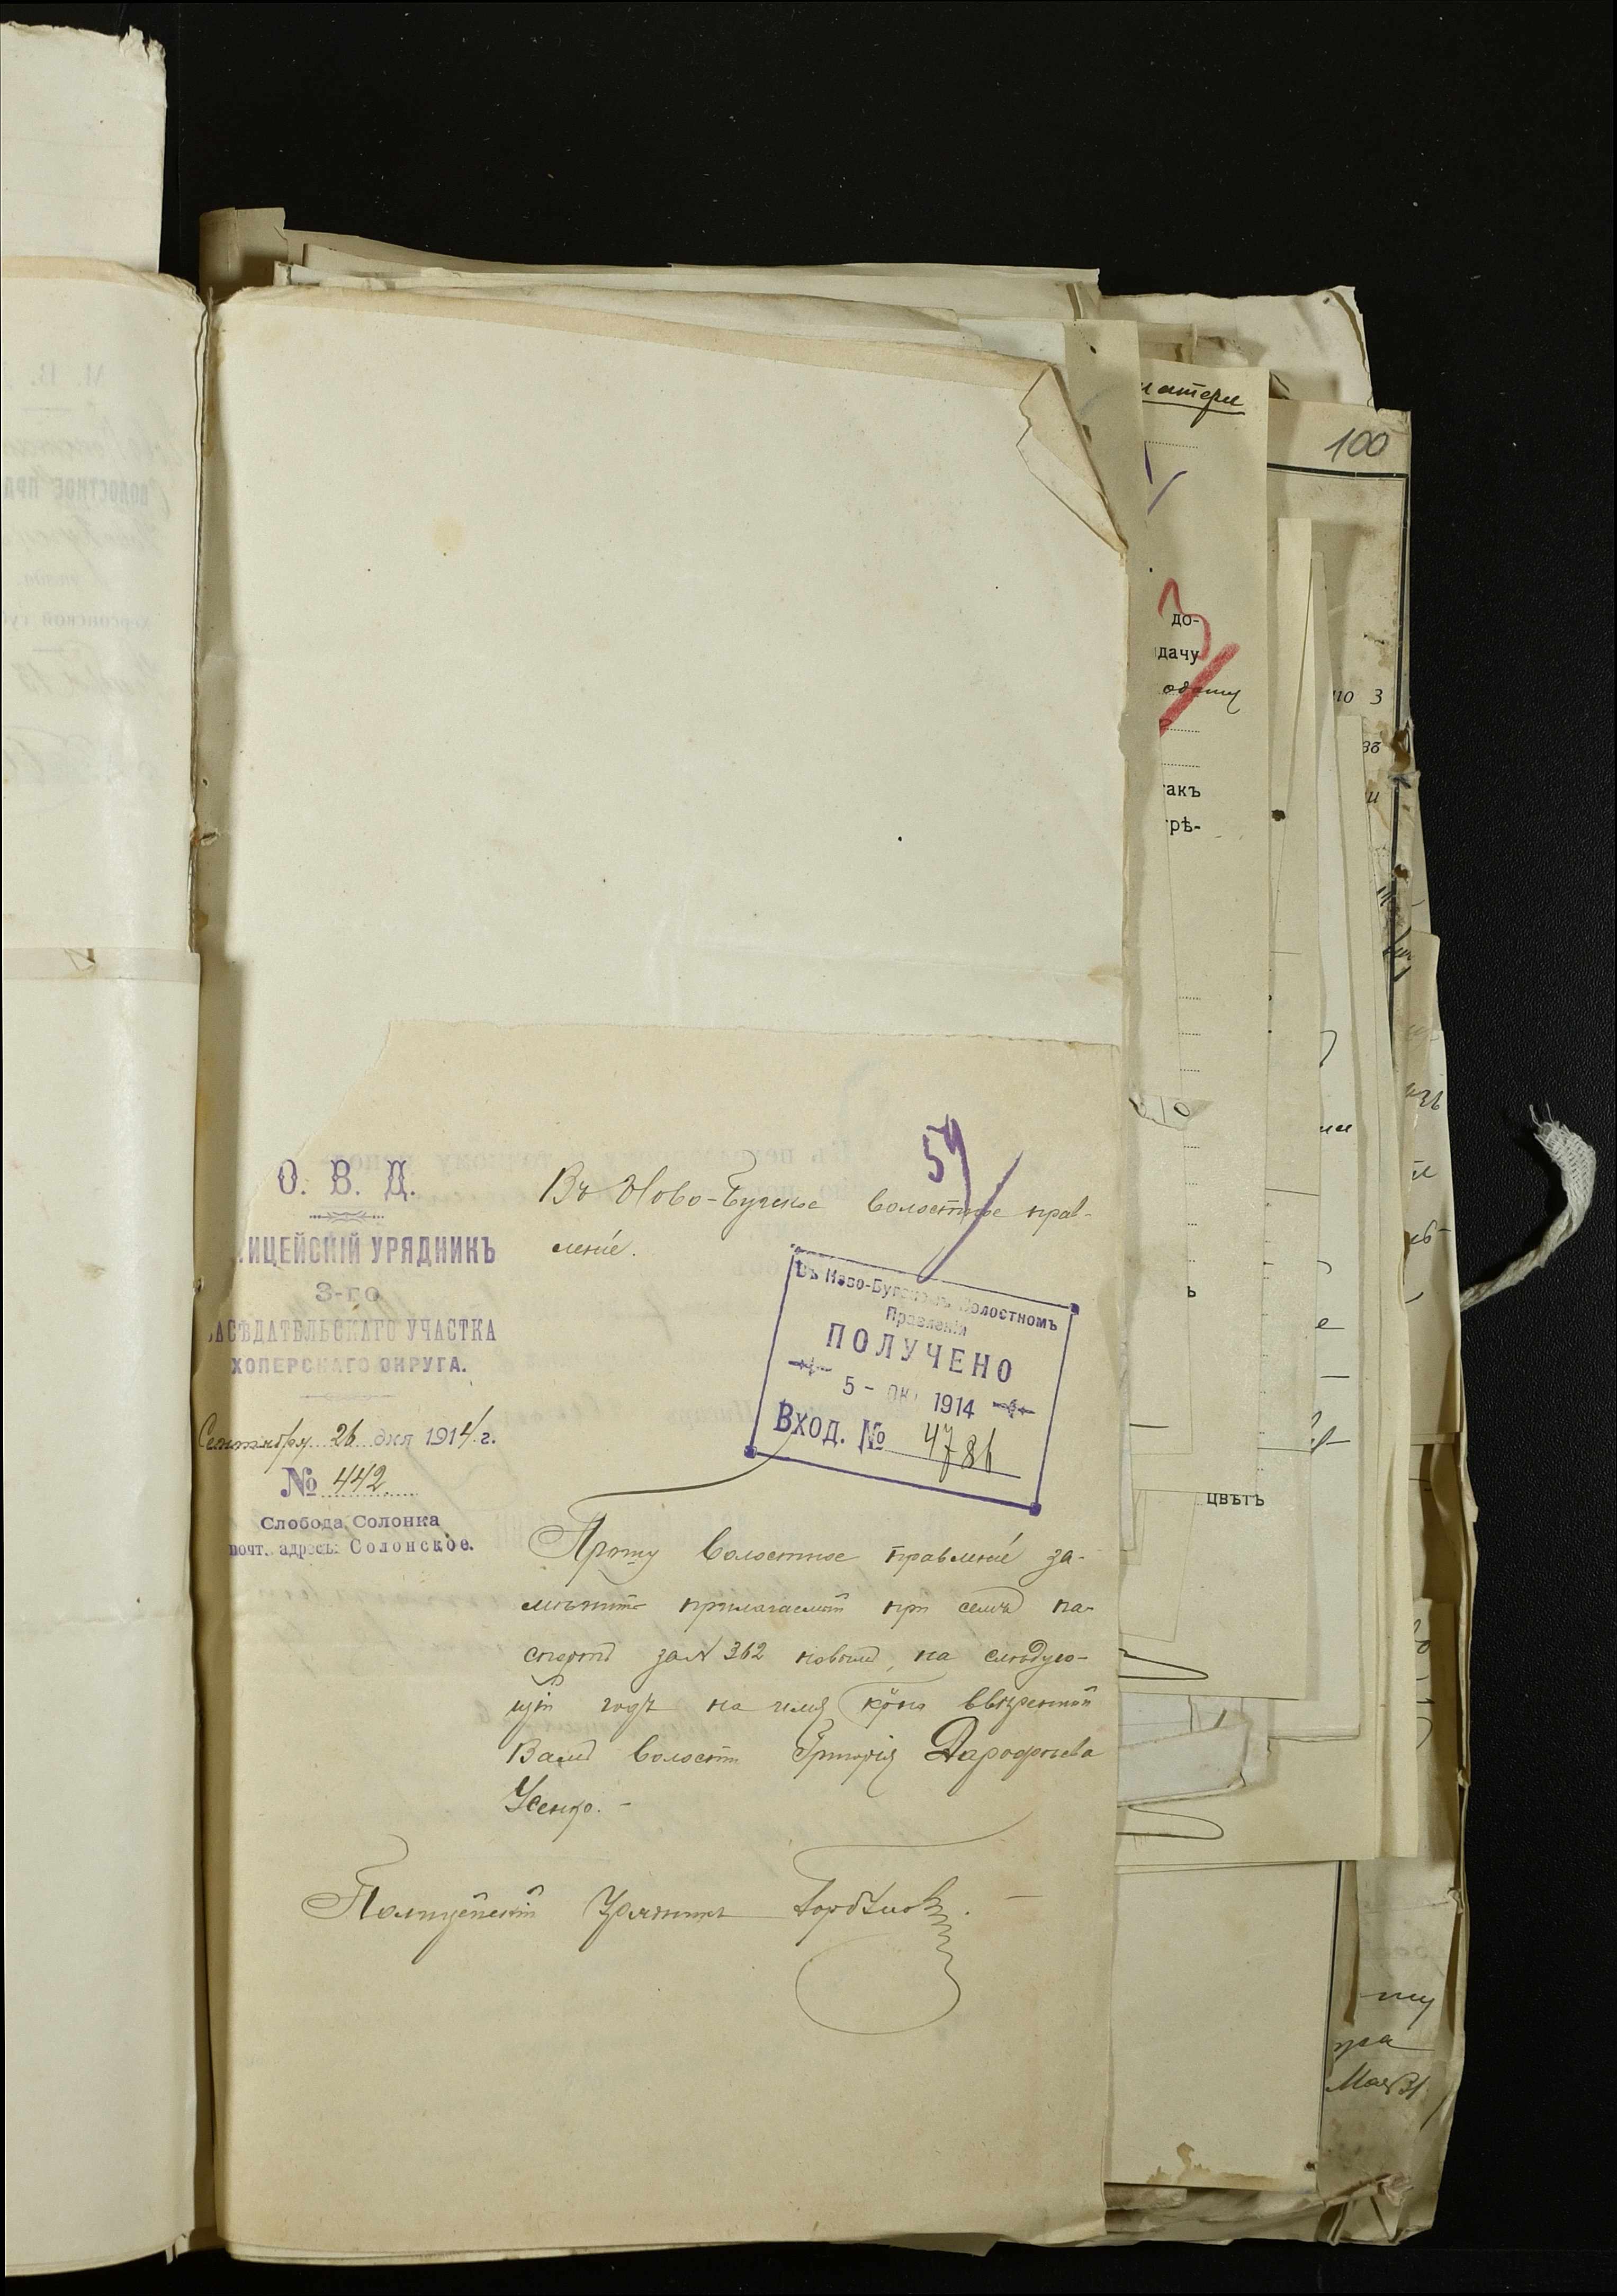 О. В. Д.
ИЦЕЙСКІЙ УРЯДНИКЪ
3-го
ЗАСѢДАТЕЛЬСКАГО УЧАСТКА
ХОПЕРСКАГО ОКРУГА.
Сентября 26 дня 1914 г.
№ 442
Слобода Солонка
почт. адресъ: Солонское.
54
Въ Ново-Бугское волостное прав-
леніе.
Въ Ново-Бугскомъ Волостномъ
Правленіи
ПОЛУЧЕНО
5 - ОК 1914
Вход. № 4786
Прошу Волостное Правленіе за-
мѣнить прилагаемый при семъ па-
спортъ за № 362 новымъ, на слѣдую-
щій годъ на имя кр̃на ввѣренной
Вамъ волости Григорія Дарофѣева
Усенко.
Полицейскій Урядникъ
матери
100
до-
дачу
акъ
рѣ-
но 3
въ
и
ь
е
цвѣтъ